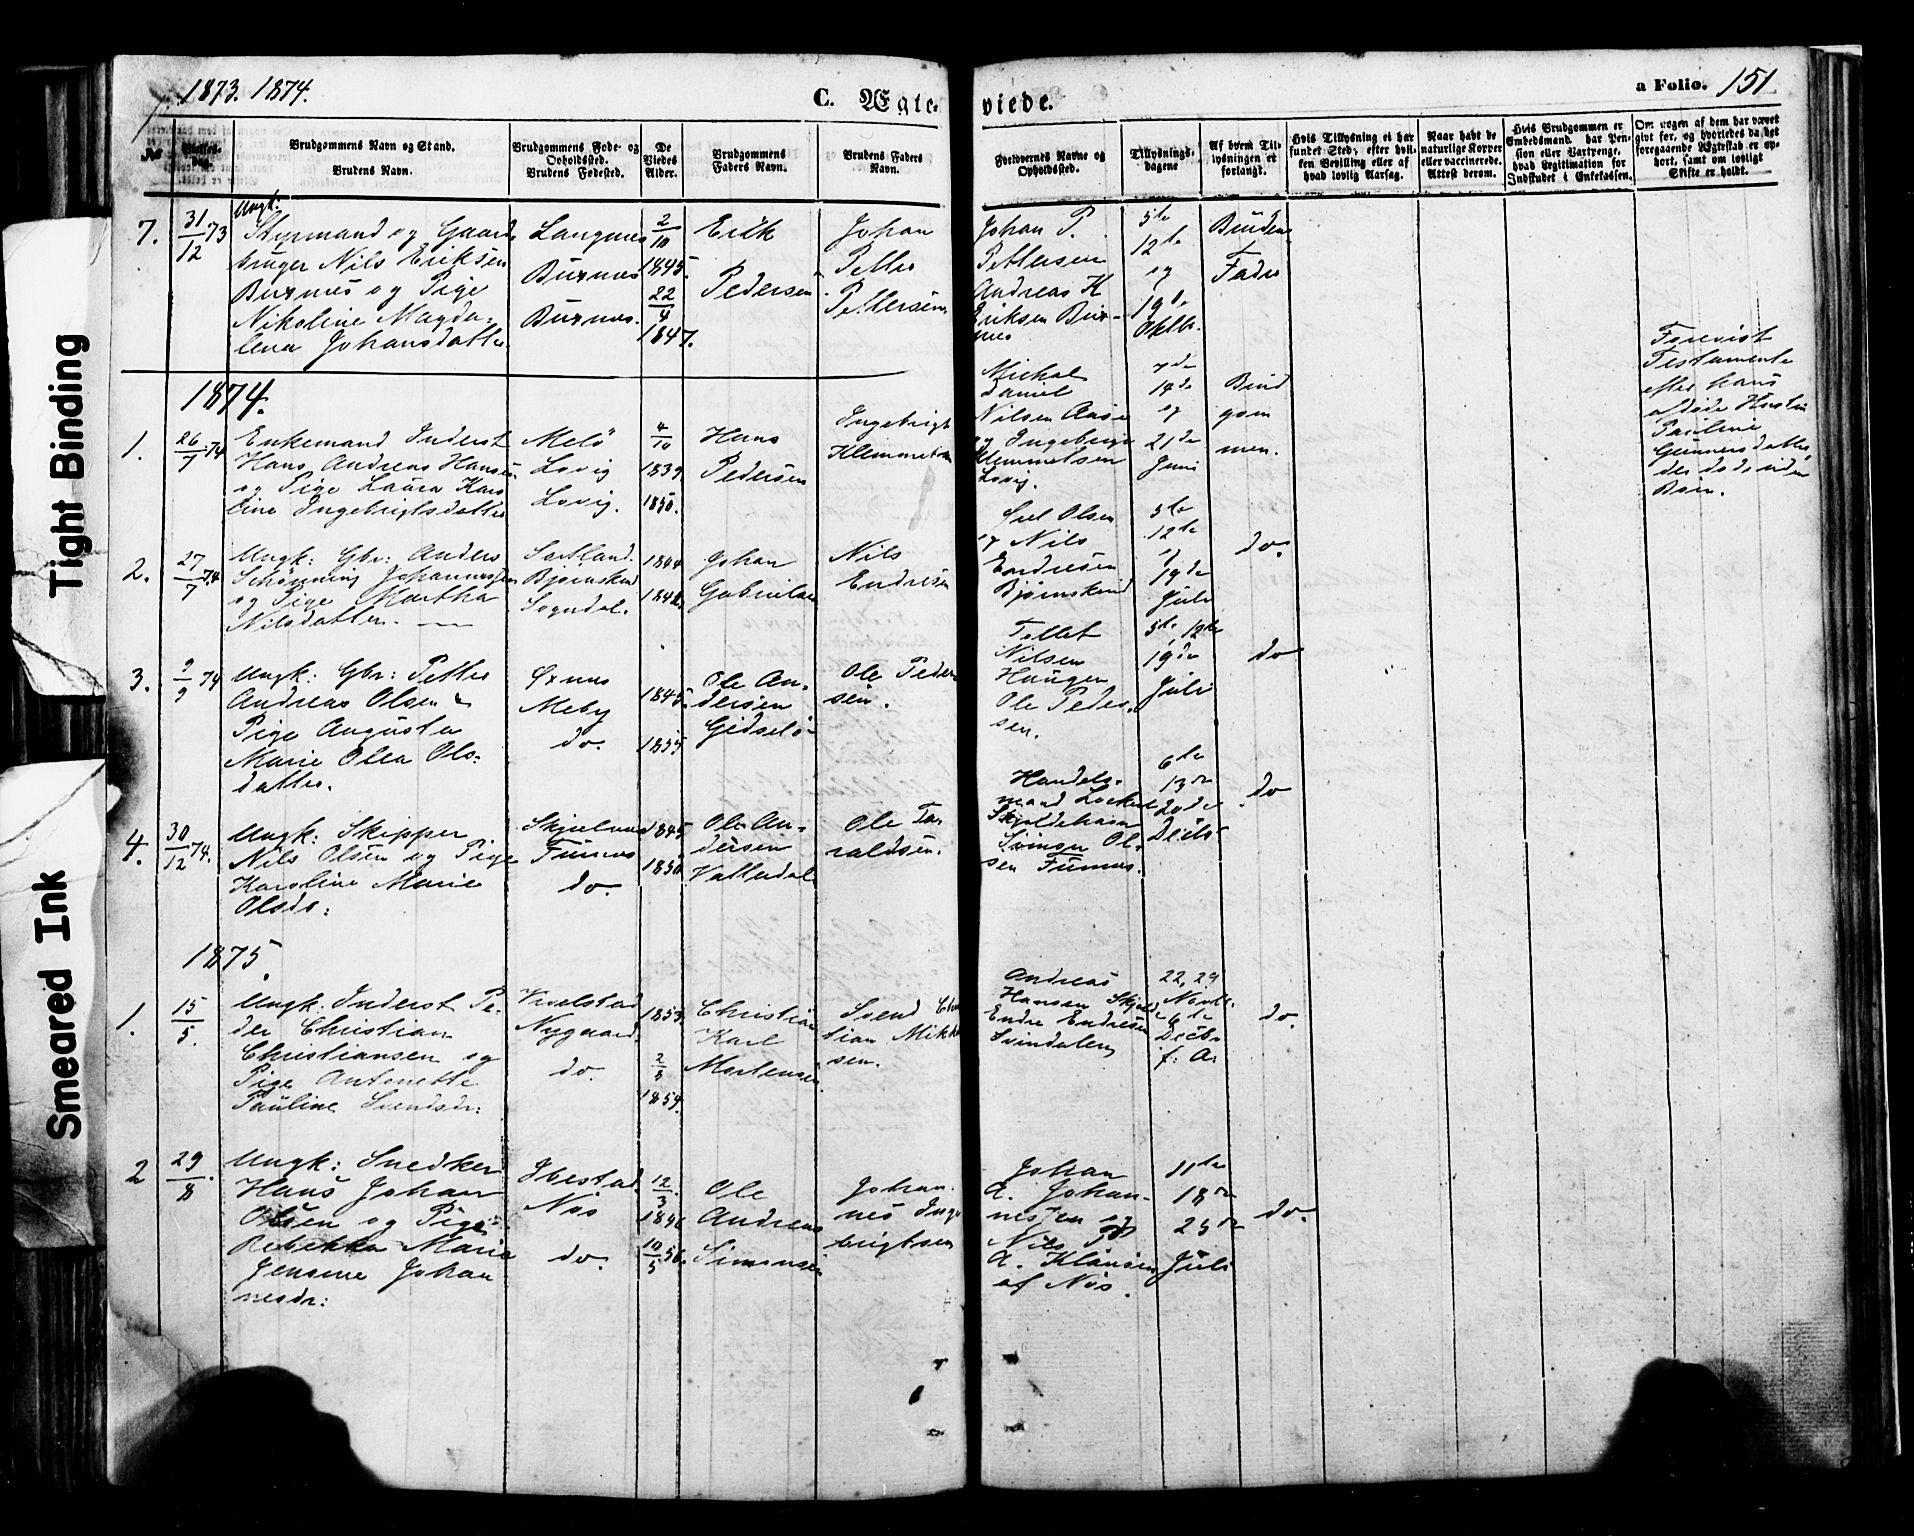 1873. 1874.
C. Ægte-
viede.
a Folio. 151
No
Brudgommens Navn og Stand.
Brudens Navn.
Brudgommens Føde- og
Opholdssted.
Brudens Fødested.
De
Viedes
Alder.
Brudgommens
Faders Navn.
Brudens Faders
Navn.
Forlovernes Navne og
Opholdssted.
Tillysnings-
dagene
Af hvem Til-
lysningen er
forlangt.
Hvis Tillysning ei har
fundet Sted, efter hvil-
ken Bevilling eller af
hvad lovlig Aarsag.
Naar havt de
naturlige Kopper
eller vaccinerede.
Attest derom.
Hvis Brudgommen er
Embedsmand, har Pen-
sion eller Vartpenge,
hvad Legitimation for
Indskudet i Enkekassen.
Om nogen af dem har været
givt før, og hvorledes da det
foregaaende Ægteskab er op-
hørt, samt om lovligt
Skifte er holdt.
7.
31/12 73
Ungk:
Styrmand og Gaard-
bruger Nils Eriksen
Buxnes og Pige
Nikoline Magda-
lena Johansdatter.
Langnes
Buxnes
Buxnes.
2/10
1845.
22/4
1847.
Erik
Pedersen
Johan
Petter
Pettersen
Johan P.
Pettersen
Andreas H
Eriksen Bux-
nes
5te
12te
og
19de
Oktbr.
Brudens
Fader
1874.
1.
26/7 74
Enkemand Inderst
Hans Andreas Hansen
og Pige Laura Karo
line Ingebrigtsdatter
Melø
Lovig
Lovig.
4/10
1839
1850.
Hans
Pedersen
Ingebrigt
Klemmetsen
Michal
Daniel
Nilsen Aase
og Ingebrigt
Klemmetsen
Lovig.
7de
14de
og
21de
Juni
Brud
gom
men.
Forevist
Testamente
efter hans
afdøde Hustru
Pauline
Gunnersdatter,
der døde uden
Børn.
2.
27/7 74
Ungk: Gbr: Anders
Schønning Johannessen
og Pige Martha
Nilsdatter.
Sortland.
Bjørnskind
Sogndal.
1844
1848.
Johan
Gabrielsen
Nils
Endresen
Olsen
og Nils
Endresen
Bjørnskind
5te
12te
og
19de
Juli
do.
3.
9/9 74
Ungk: Gbr: Petter
Andreas Olsen &
Pige Augusta
Marie Olea Ols-
datter.
Øxnes
Meby
do.
1845.
1855
Ole An-
dersen
Gidselø
Ole Peder-
sen.
Tollet
Nilsen
Haugen
Ole Peder-
sen.
5te, 12te
19de
Juli
do
4.
30/12 74.
Ungk: Skipper
Nils Olsen og Pige
Karoline Marie
Olsdr:
Skjelnes
Funnes
do.
1845
1850
Ole An-
dersen
Vatterdal
Ole To-
raldsen.
Handels-
mand Lockert
Skjoldehavn
Ol-
sen Funnes.
6te
13de
20de
Decbr
do
1875.
1.
15/5.
Ungk. Inderst Pe-
der Christian
Christiansen og
Pige Antonette
Pauline Svendsdr:
Kvalstad
Nygaard.
do.
1853.
2/8
1854.
Christian
Karl
Mortensen
Svend Chr
tian Mikkel
sen.
Andreas
Hansen
Endre Endresen
Svindalen
22, 29
Novbr.
6te
Decbr
f. A.
do.
2
29/8.
Ungk: Snedker
Hans Johan
Olsen og Pige
Rebekka Marie
Jensine Johan
nesdr:
Ibestad.
Nøs
do.
12/3.
1846
10/5 56.
Ole
Andreas
Simonsen
Johan-
nes Inge
brigtsen
Johan
A. Johan-
nesen og
Nils
A. Klausen
af Nøs.
11te
18de
25de
Juli
do.
Tight Binding
Smeared Ink